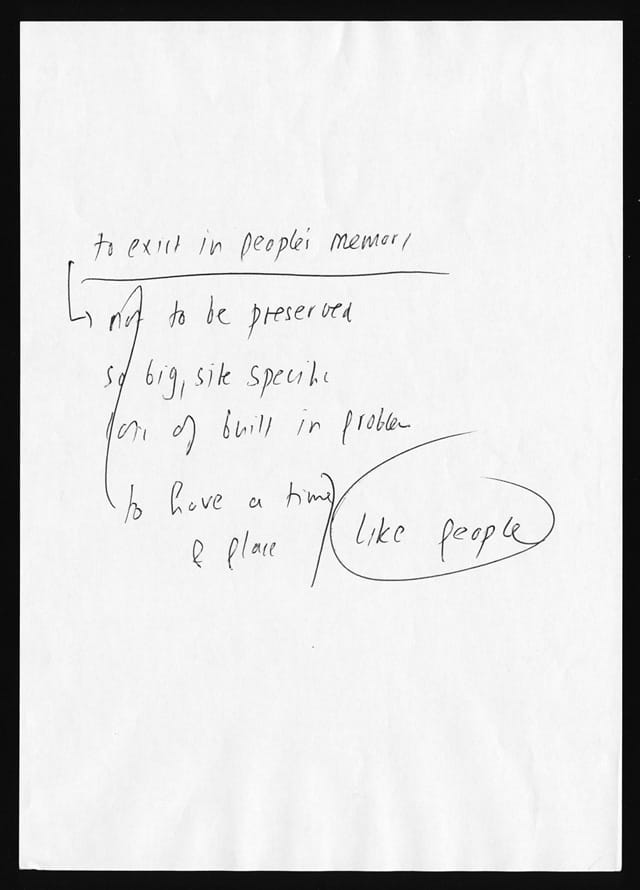 to exist in people's memory
not to be preserved
so big, site specific
lots of built in problem
to have a time
& place
like people